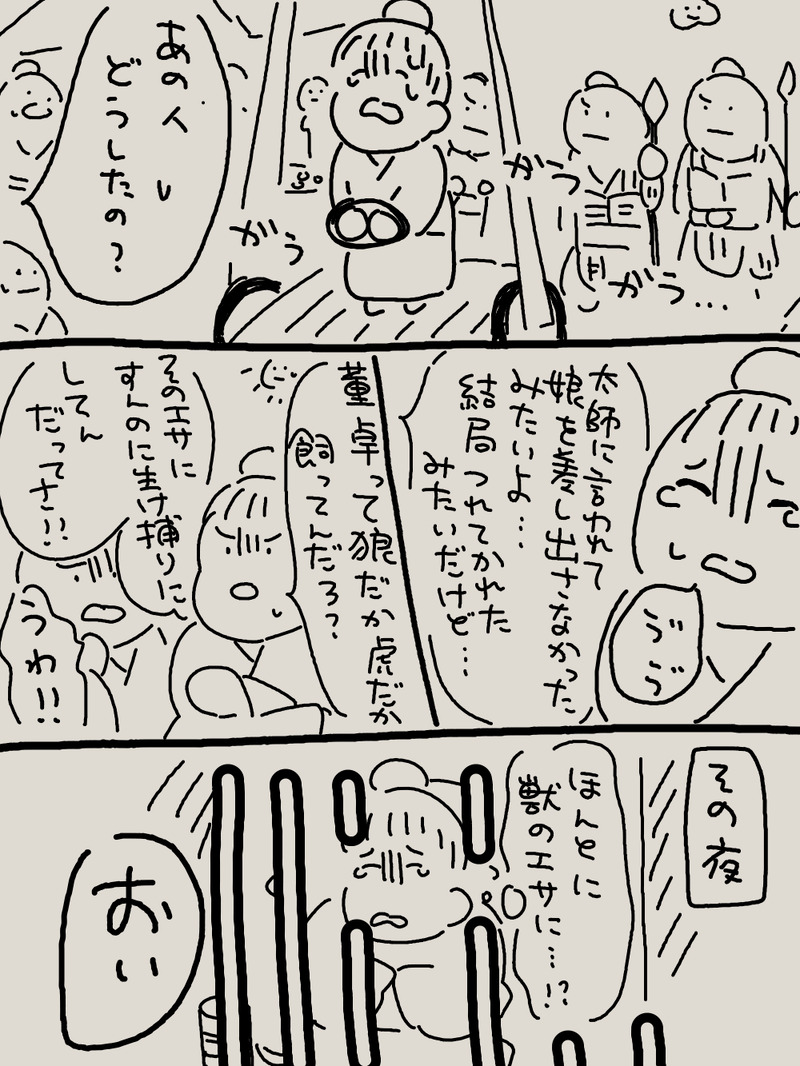 がう
がう…
がう
あの人
どうしたの?
太師に言われて
娘を差し出さなかった
みたいよ…
結局つれてかれた
みたいだけど…
ゔゔ
董卓って狼だか虎だか
飼ってんだろ?
そのエサに
すんのに生け捕りに
してん
だってさ!!
うわ!!
その夜
ほんとに
獣のエサに…!?
おい